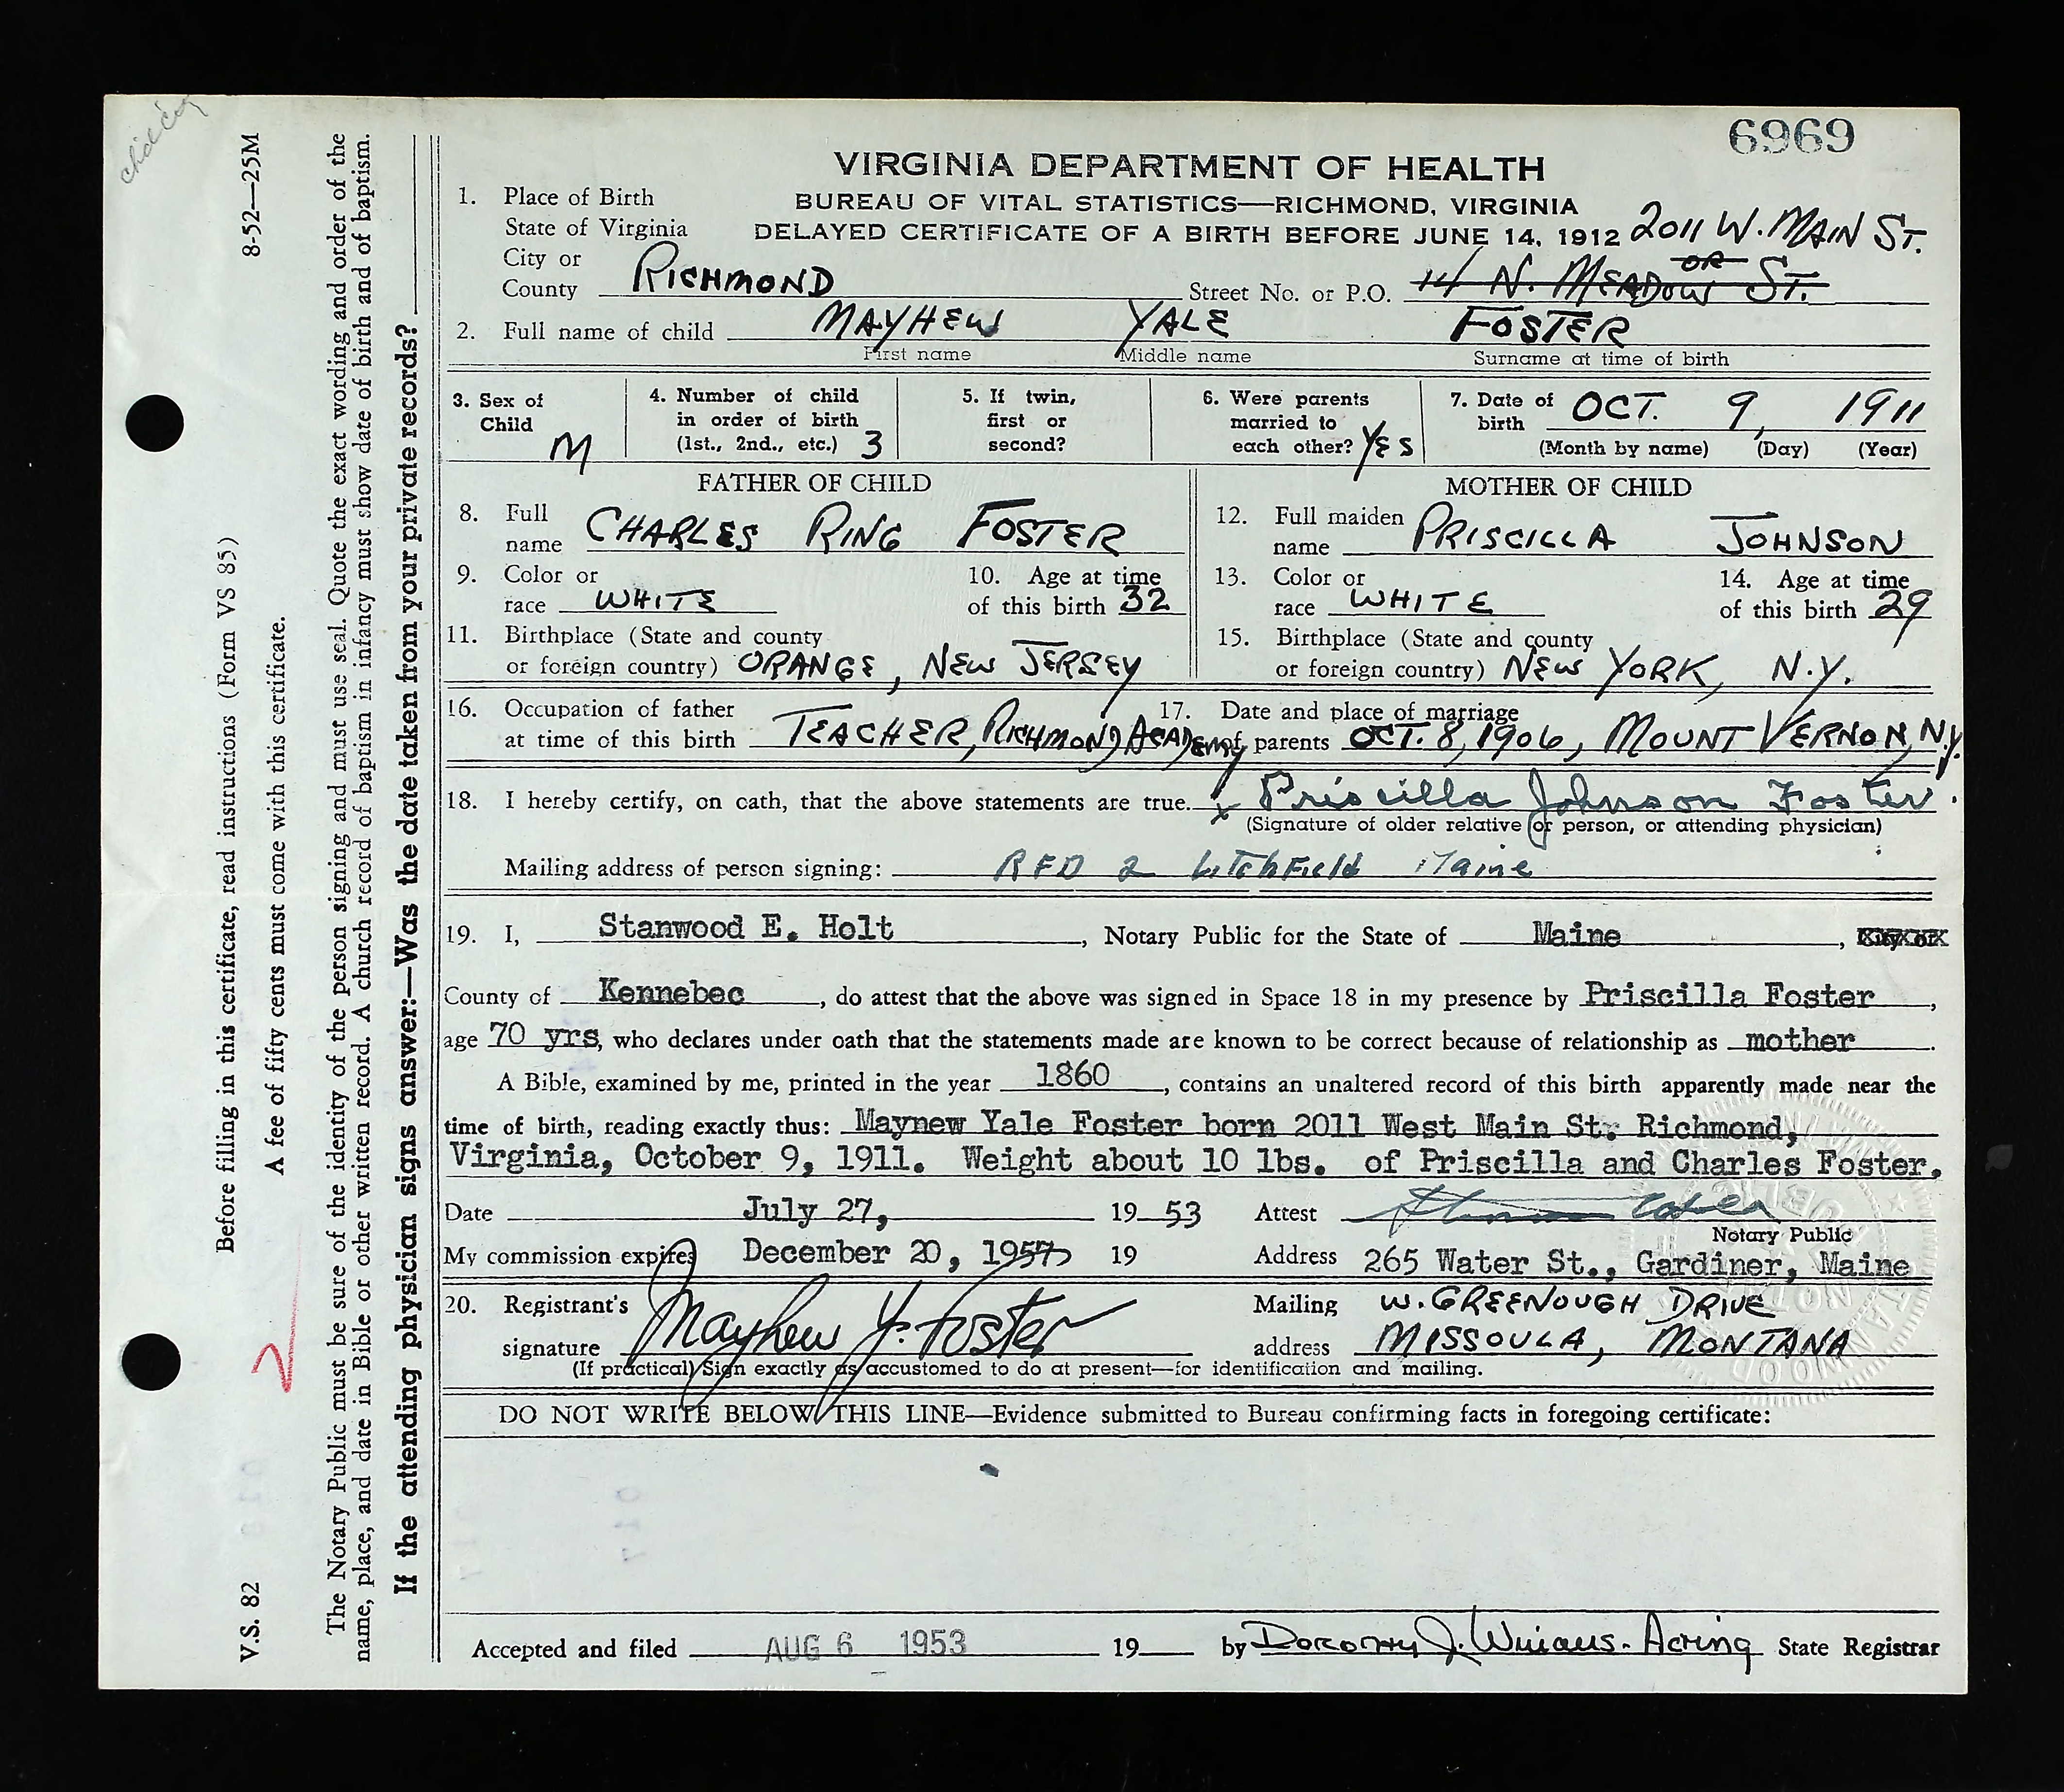 6969
VIRGINIA DEPARTMENT OF HEALTH
BUREAU OF VITAL STATISTICS—RICHMOND, VIRGINIA
DELAYED CERTIFICATE OF A BIRTH BEFORE JUNE 14, 1912
1. Place of Birth
State of Virginia
2011 W. MAIN ST.
OR
City or County RICHMOND Street No. or P.O. 14 N. MEADOW ST.
2. Full name of child MAYHEW YALE FOSTER
First name Middle name Surname at time of birth
3. Sex of Child M
4. Number of child in order of birth (1st., 2nd., etc.) 3
5. If twin, first or second?
6. Were parents married to each other? YES
7. Date of birth OCT. 9, 1911
(Month by name) (Day) (Year)
FATHER OF CHILD
8. Full name CHARLES RING FOSTER
9. Color or race WHITE 10. Age at time of this birth 32
11. Birthplace (State and county or foreign country) ORANGE, NEW JERSEY
MOTHER OF CHILD
12. Full maiden name PRISCILLA JOHNSON
13. Color or race WHITE 14. Age at time of this birth 29
15. Birthplace (State and county or foreign country) NEW YORK, N.Y.
16. Occupation of father at time of this birth TEACHER, RICHMOND ACADEMY
17. Date and place of marriage of parents OCT. 8, 1906, MOUNT VERNON, N.Y.
18. I hereby certify, on oath, that the above statements are true. x Priscilla Johnson Foster.
(Signature of older relative or person, or attending physician)
Mailing address of person signing: RFD 2 Litchfield Maine
19. I, Stanwood E. Holt, Notary Public for the State of Maine,
County of Kennebec, do attest that the above was signed in Space 18 in my presence by Priscilla Foster,
age 70 yrs, who declares under oath that the statements made are known to be correct because of relationship as mother.
A Bible, examined by me, printed in the year 1860, contains an unaltered record of this birth apparently made near the
time of birth, reading exactly thus: Maynew Yale Foster born 2011 West Main St. Richmond,
Virginia, October 9, 1911. Weight about 10 lbs. of Priscilla and Charles Foster.
Date July 27, 19 53 Attest
Notary Public
My commission expires December 20, 1957 19 Address 265 Water St., Gardiner, Maine
20. Registrant's signature Mayhew Y. Foster
Mailing address W. GREENOUGH DRIVE
MISSOULA, MONTANA
(If practical) Sign exactly as accustomed to do at present—for identification and mailing.
DO NOT WRITE BELOW THIS LINE—Evidence submitted to Bureau confirming facts in foregoing certificate:
Accepted and filed AUG 6 1953 19 by Dorothy J. Williams - Acting State Registrar
V.S. 82
8-52—25M
Before filling in this certificate, read instructions (Form VS 85)
A fee of fifty cents must come with this certificate.
The Notary Public must be sure of the identity of the person signing and must use seal. Quote the exact wording and order of the
name, place, and date in Bible or other written record. A church record of baptism in infancy must show date of birth and of baptism.
If the attending physician signs answer:—Was the date taken from your private records?